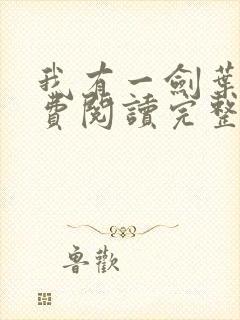 我有一劍葉
費閱讀完整
魯歡